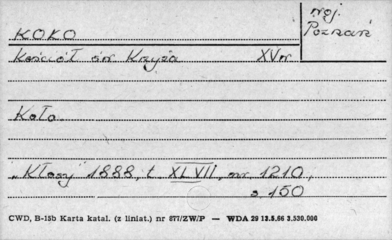 woj.
Poznań
KOŁO
Kościół św Krzyża XVw.
Koło.
„Kłosy" 1888, t XLVII, nr. 1210,
s 150
CWD, B-15b Karta katal. (z liniat.) nr 877/ZW/P — WDA 29 13.5.66 3,530.000